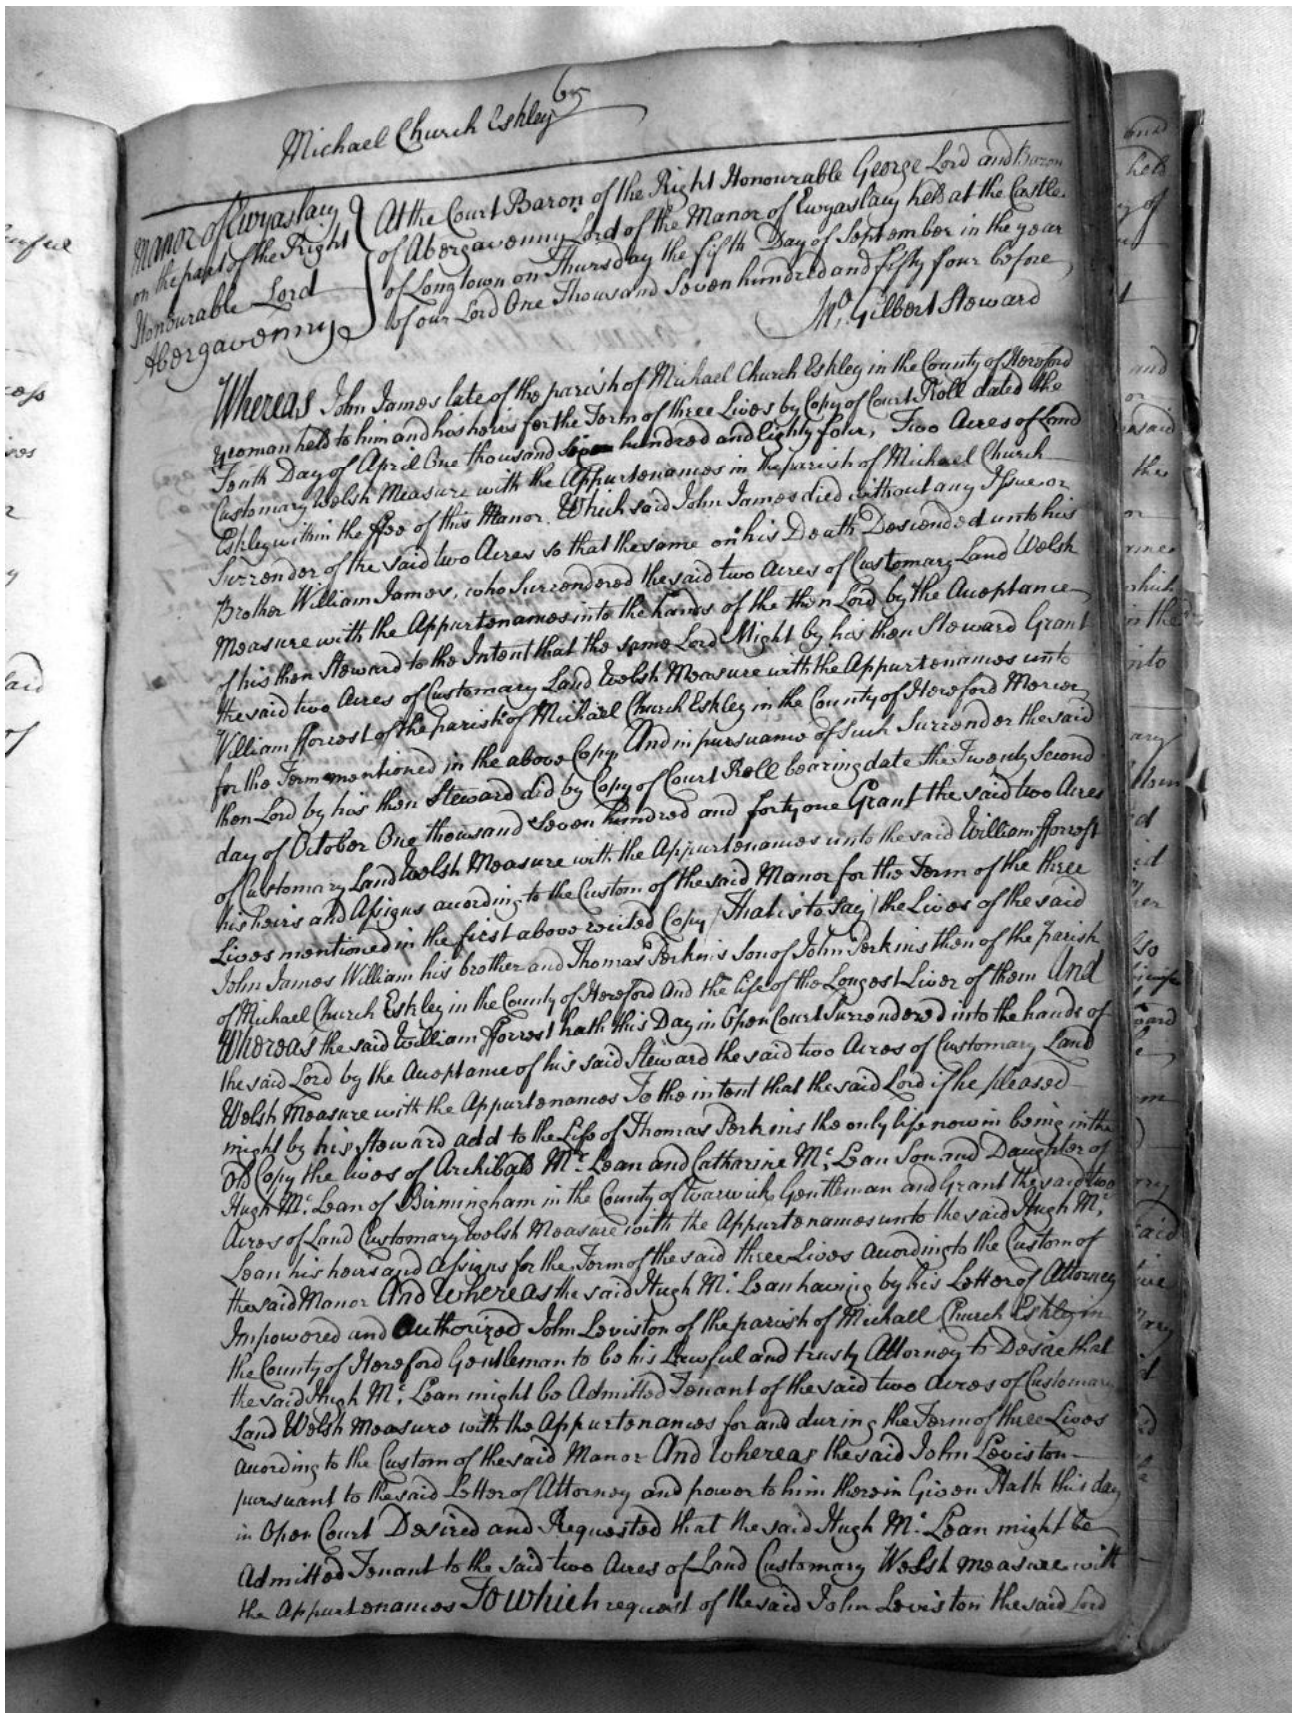 Michael Church Eskley
Manor of Ewyaslacy
on the part of the Right
Honourable Lord
Abergavenny
At the Court Baron of the Right Honourable George Lord and Baron
of Abergavenny Lord of the Manor of Ewyaslacy held at the Castle
of Longtown on Thursday the fifth Day of September in the year
of our Lord One Thousand Seven hundred and fifty four before
Gilbert Steward
Whereas John James late of the parish of Michael Church Eskley in the County of Hereford
yeoman held to him and his heirs for the Term of three Lives by Copy of Court Roll dated the
Tenth Day of April One thousand hundred and Eighty four, Two Acres of Land
Customary Welsh Measure with the Appurtenances in the parish of Michael Church
Eskley within the ffee of this Manor. Which said John James died without any Issue or
Surrender of the said two Acres so that the same on his Death Descended unto his
Brother William James, who Surrendered the said two Acres of Customary Land Welsh
Measure with the Appurtenances into the hands of the then Lord by the Acceptance
of his then Steward to the Intent that the same Lord Might by his then Steward Grant
the said two Acres of Customary Land Welsh Measure with the Appurtenances unto
William fforrest of the parish of Michael Church Eskley in the County of Hereford Mercer
for the Term mentioned in the above Copy, And in pursuance of such Surrender the said
then Lord by his then Steward did by Copy of Court Roll bearing date the Twenty Second
day of October One thousand Seven hundred and forty one Grant the said two Acres
of Customary Land Welsh Measure with the Appurtenances unto the said William fforrest
his heirs and Assigns according to the Custom of the said Manor for the Term of the three
Lives mentioned in the first above recited Copy (That is to say) the Lives of the said
John James William his brother and Thomas Perkins Son of John Perkins then of the parish
of Michael Church Eskley in the County of Hereford And the life of the Longest Liver of them And
Whereas the said William fforrest hath this Day in Open Court Surrendered into the hands of
the said Lord by the Acceptance of his said Steward the said two Acres of Customary Land
Welsh Measure with the Appurtenances To the intent that the said Lord if he pleased
might by his Steward add to the Life of Thomas Perkins the only life now in being in the
old Copy the lives of Archibald Mc. Lean and Catharine Mc. Lean Son and Daughter of
Hugh Mc. Lean of Birmingham in the County of Warwick Gentleman and Grant the said two
Acres of Land Customary Welsh Measure with the Appurtenances unto the said Hugh Mc.
Lean his heirs and Assigns for the Term of the said three Lives according to the Custom of
the said Manor And Whereas the said Hugh Mc. Lean having by his Letter of Attorney
Impowered and Authorized John Leviston of the parish of Michael Church Eskley in
the County of Hereford Gentleman to be his Lawful and trusty Attorney to Desire that
the said Hugh Mc. Lean might be Admitted Tenant of the said two Acres of Customary
Land Welsh Measure with the Appurtenances for and during the Term of three Lives
according to the Custom of the said Manor And Whereas the said John Leviston
pursuant to the said Letter of Attorney and power to him therein Given Hath this day
in Open Court Desired and Requested that the said Hugh Mc. Lean might be
Admitted Tenant to the said two Acres of Land Customary Welsh Measure with
the Appurtenances To Which request of the said John Leviston the said Lord